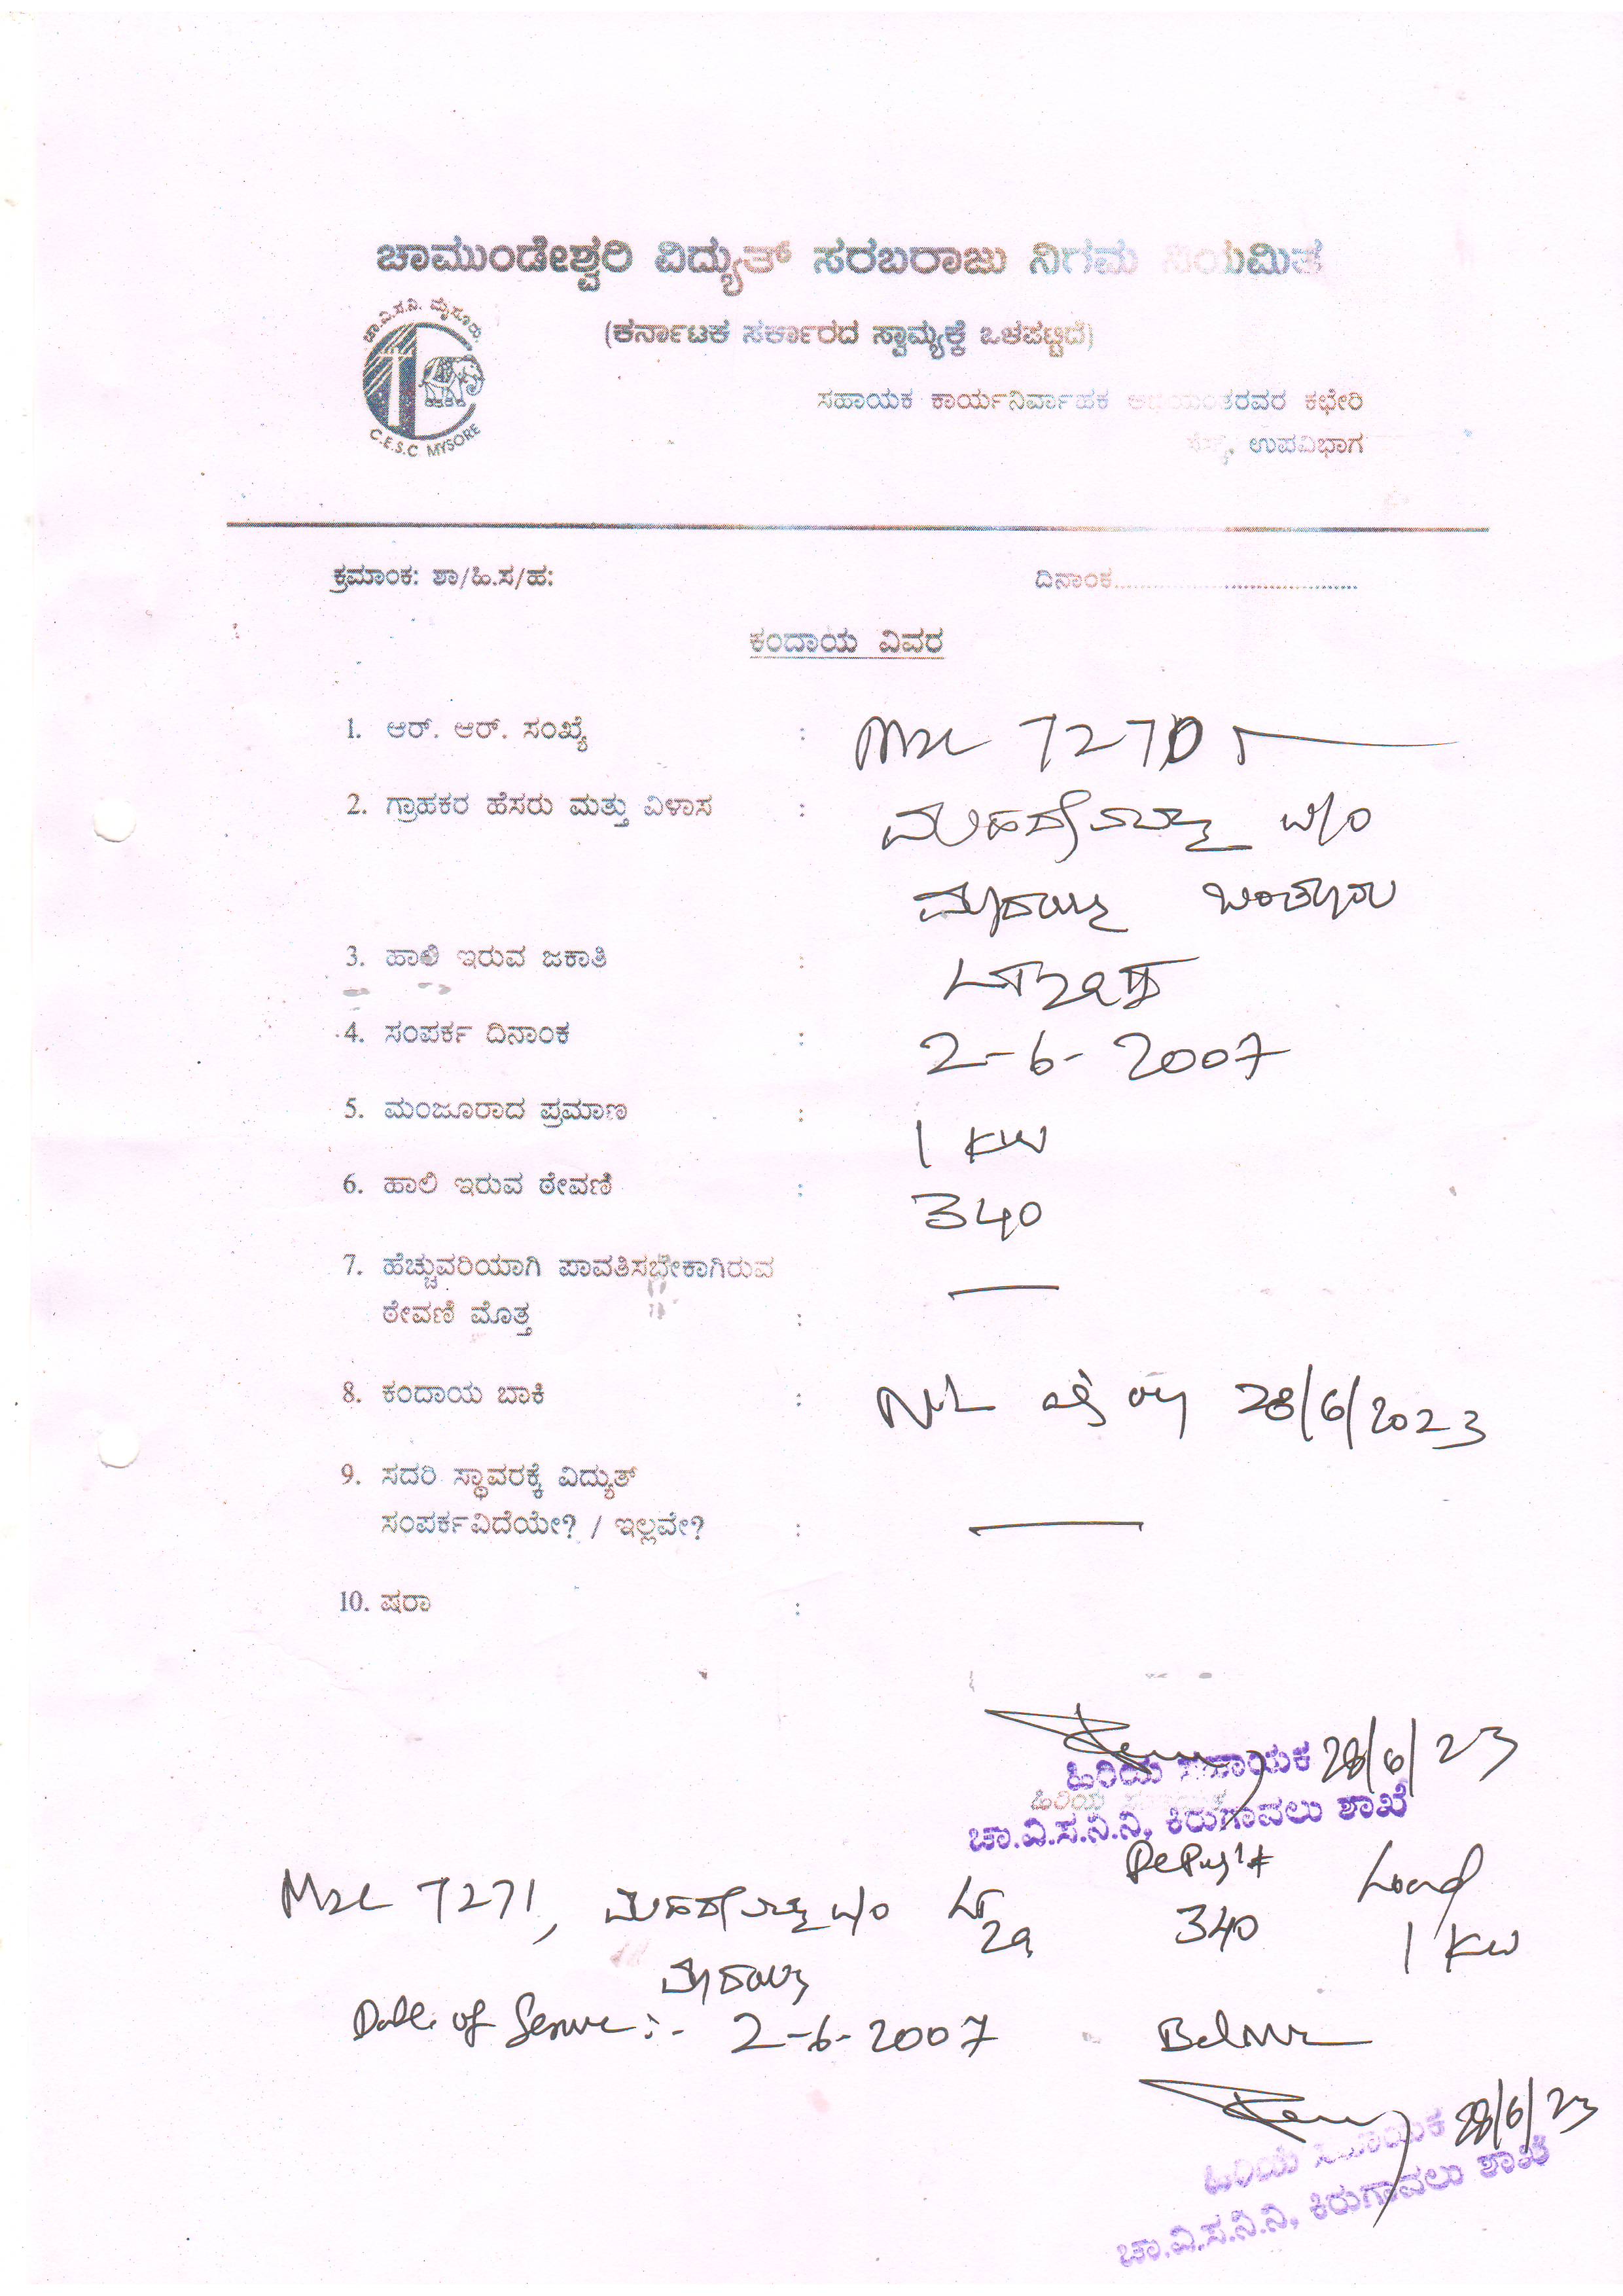 ಚಾಮುಂಡೇಶ್ವರಿ ವಿದ್ಯುತ್ ಸರಬರಾಜು ನಿಗಮ ನಿಯಮಿತ
ಚಾ.ವಿ.ಸ.ನಿ. ಮೈಸೂರು
C.E.S.C MYSORE
(ಕರ್ನಾಟಕ ಸರ್ಕಾರದ ಸ್ವಾಮ್ಯಕ್ಕೆ ಒಳಪಟ್ಟಿದೆ)
ಸಹಾಯಕ ಕಾರ್ಯನಿರ್ವಾಹಕ ಅಭಿಯಂತರವರ ಕಛೇರಿ
ಉಪವಿಭಾಗ
ಕ್ರಮಾಂಕ: ಶಾ/ಹಿ.ಸ/ಹ: ದಿನಾಂಕ........................................
ಕಂದಾಯ ವಿವರ
1. ಆರ್. ಆರ್. ಸಂಖ್ಯೆ : 7270
2. ಗ್ರಾಹಕರ ಹೆಸರು ಮತ್ತು ವಿಳಾಸ :
3. ಹಾಲಿ ಇರುವ ಜಕಾತಿ :
4. ಸಂಪರ್ಕ ದಿನಾಂಕ : 2-6-2007
5. ಮಂಜೂರಾದ ಪ್ರಮಾಣ : 1 KW
6. ಹಾಲಿ ಇರುವ ಠೇವಣಿ : 340
7. ಹೆಚ್ಚುವರಿಯಾಗಿ ಪಾವತಿಸಬೇಕಾಗಿರುವ
ಠೇವಣಿ ಮೊತ್ತ : —
8. ಕಂದಾಯ ಬಾಕಿ : NIL 28/6/2023
9. ಸದರಿ ಸ್ಥಾವರಕ್ಕೆ ವಿದ್ಯುತ್
ಸಂಪರ್ಕವಿದೆಯೇ? / ಇಲ್ಲವೇ? : —
10. ಷರಾ :
28/6/23
ಹಿರಿಯ ಸಹಾಯಕ
ಹಿರಿಯ ಸಹಾಯಕ
ಚಾ.ವಿ.ಸ.ನಿ.ನಿ, ಕಿರುಗಾವಲು ಶಾಖೆ
Load
7271, 2a 340 1 KW
Date of Service :- 2-6-2007
28/6/23
ಹಿರಿಯ ಸಹಾಯಕ
ಚಾ.ವಿ.ಸ.ನಿ.ನಿ, ಕಿರುಗಾವಲು ಶಾಖೆ